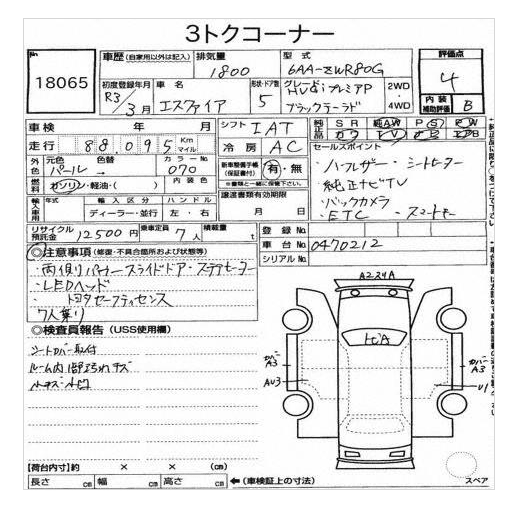 3トクコーナー
No. 18065
車歴 (自家用以外は記入) 排気量 1800 型式 6AA-ZWR80G 評価点 4
初度登録年月 R3/3月 車名 エスクァイア 形状・ドア数 5 グレード HV Gi プレミアムP ブラックテーラード 2WD・4WD 内装補助評価 B
車検 年 月 シフト IAT 純正品 SR 純AW PS PW
走行 88,095 Km マイル 冷房 AC カワ TV ナビ エアB
外色 元色 パール 色替 → カラーNo. 070 内装色 新車整備手帳(保証書付) 有・無 ※書類と一緒に保管下さい。
セールスポイント
・ハーフレザー・シートヒーター
・純正ナビTV
・バックカメラ
・ETC ・スマートキー
燃料 ガソリン・軽油・( )
輸入車用 年式 輸入区分 ディーラー・並行 ハンドル 左・右
譲渡書類有効期限 年 月 日
リサイクル預託金 12500円 乗車定員 7人 積載量 t
登録No.
車台No. 0470212
シリアルNo.
◎注意事項 (修復・不具合箇所および状態等)
・両側パワースライドドア・ステアヒーター
・LEDヘッド
・トヨタセーフティセンス
7人乗り
◎検査員報告 (USS使用欄)
シートカバー取付
ルーム内 汚れキズ
A2 トビA
カバー A3 AU3
カバー A3 U1
【荷台内寸】約 × × (cm)
長さ cm 幅 cm 高さ cm ←(車検証上の寸法)
スペア